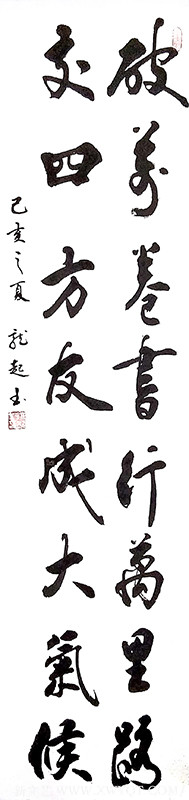 破萬卷書行萬里路
交四方友成大氣候
己亥之夏 龍起書